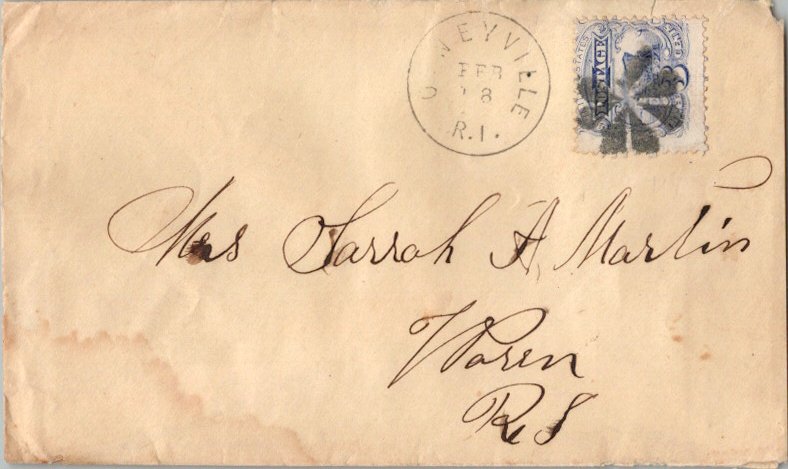 NEYVILLE
FEB
18
R.I.
POSTAGE
3
Mrs Sarrah A, Martin
Waren
R I